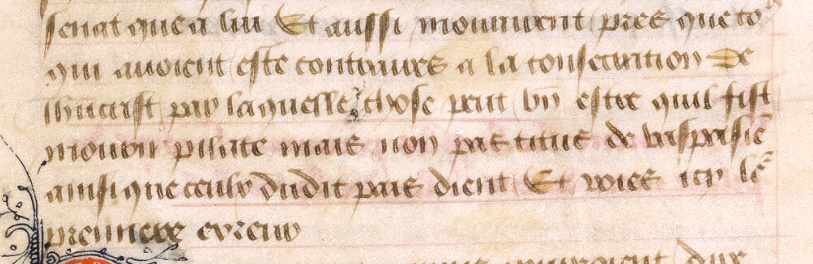 senat que a lui Et aussi moururent pres que to9
qui auoient este contraires a la consecration de
ihucrist par laquelle chose peut bn estre quil fist
mourir pilate mais non pas titus de vaspasiē
ainsi que ceulx dudit pais dient Et vees icy le
premiere erreur